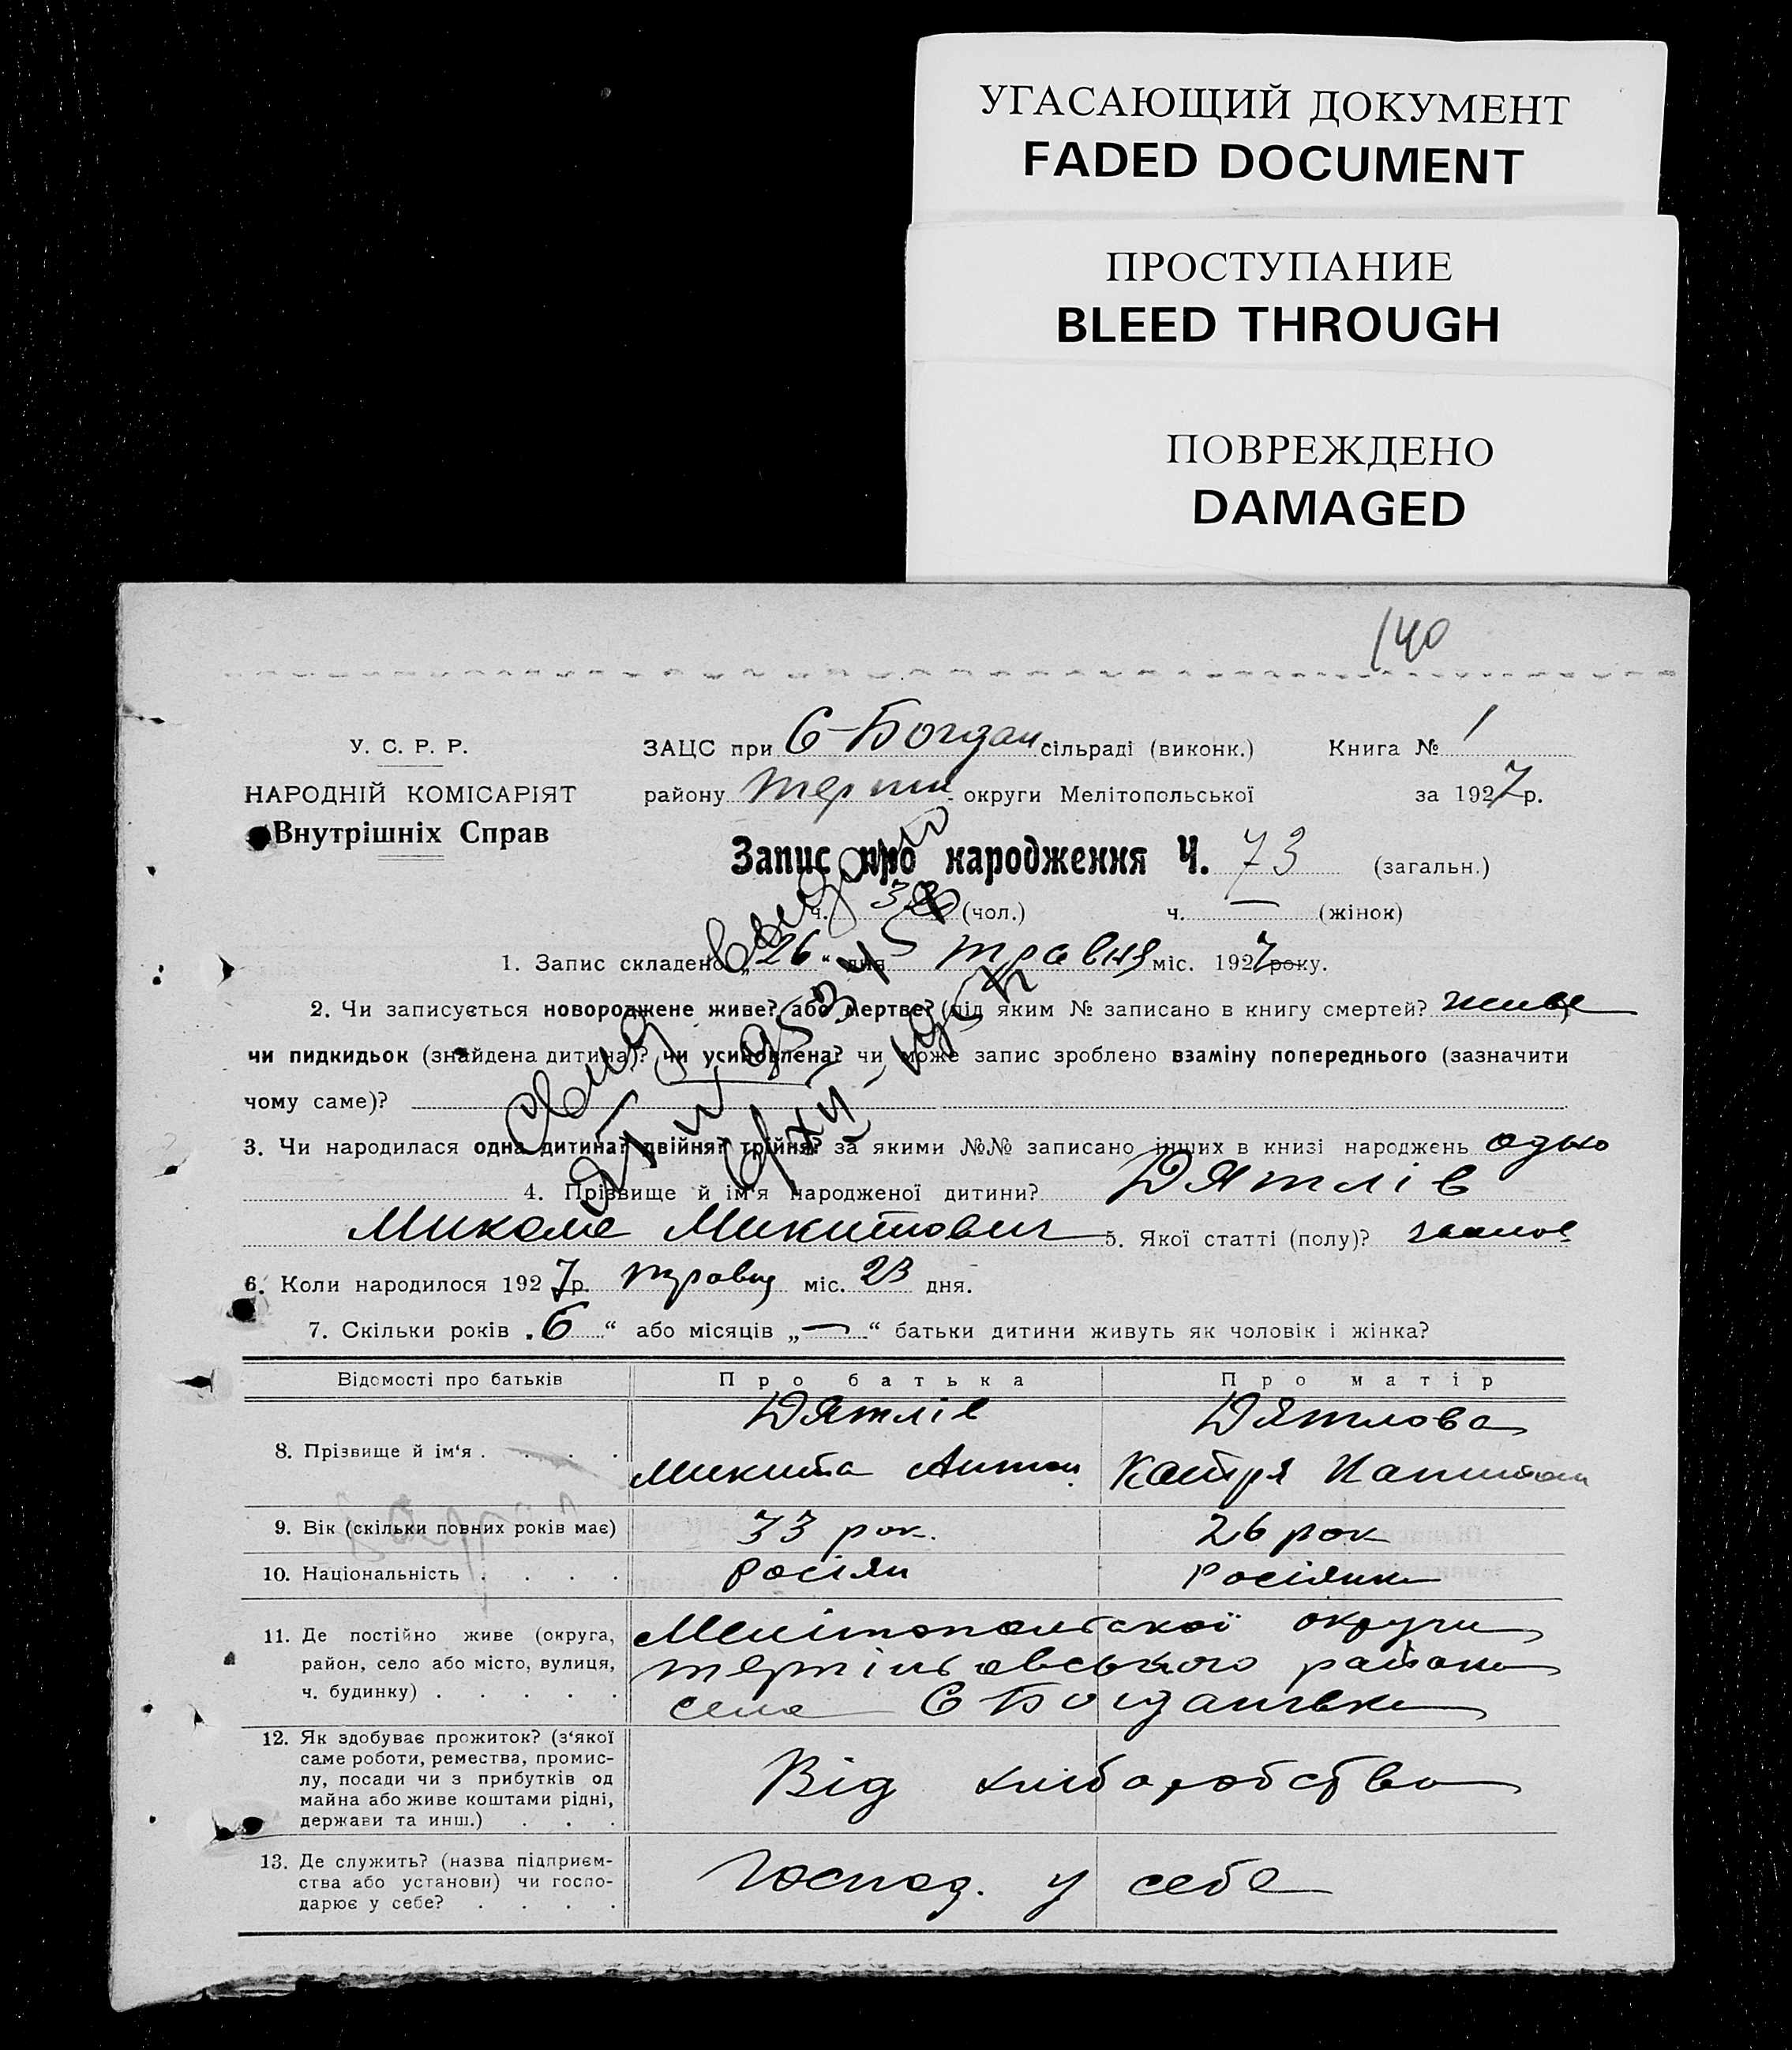 УГАСАЮЩИЙ ДОКУМЕНТ
FADED DOCUMENT
ПРОСТУПАНИЕ
BLEED THROUGH
ПОВРЕЖДЕНО
DAMAGED
140
У. С. Р. Р.
НАРОДНІЙ КОМІСАРІЯТ
Внутрішніх Справ
ЗАЦС при С-Богдан. сільраді (виконк.) Книга № 1
району округи Мелітопольської за 1927 р.
Запис про народження Ч. 73 (загальн.)
ч. (чол.) ч. — (жінок)
1. Запис складено „26“ дня травня міс. 1927 року.
2. Чи записується новороджене живе? або мертве? (під яким № записано в книгу смертей? живе
чи пидкидьок (знайдена дитина)? чи усиновлена? чи може запис зроблено взаміну попереднього (зазначити
чому саме)?
3. Чи народилася одна дитина? двійня? трійня? за якими №№ записано інших в книзі народжень одно
4. Прізвище й ім'я народженої дитини? Дятлів
Микола Микитович 5. Якої статті (полу)?
6. Коли народилося 1927 р. травня міс. 23 дня.
7. Скільки років „6“ або місяців „—“ батьки дитини живуть як чоловік і жінка?
Відомості про батьків Про батька Про матір
8. Прізвище й ім'я . . . . Дятлів Дятлова
Микита Антон. Катря
9. Вік (скільки повних років має) 33 рок. 26 рок
10. Національність . . . . росіян росіянка
11. Де постійно живе (округа, район, село або місто, вулиця, ч. будинку) . . . . .
Мелітопольської округи
району
села С Богданівка
12. Як здобуває прожиток? (з'якої
саме роботи, ремества, промис-
лу, посади чи з прибутків од
майна або живе коштами рідні,
держави та инш.) . . .
Від хліборобства
13. Де служить? (назва підприєм-
ства або установи) чи госпо-
дарює у себе? . . . .
Господ. у себе